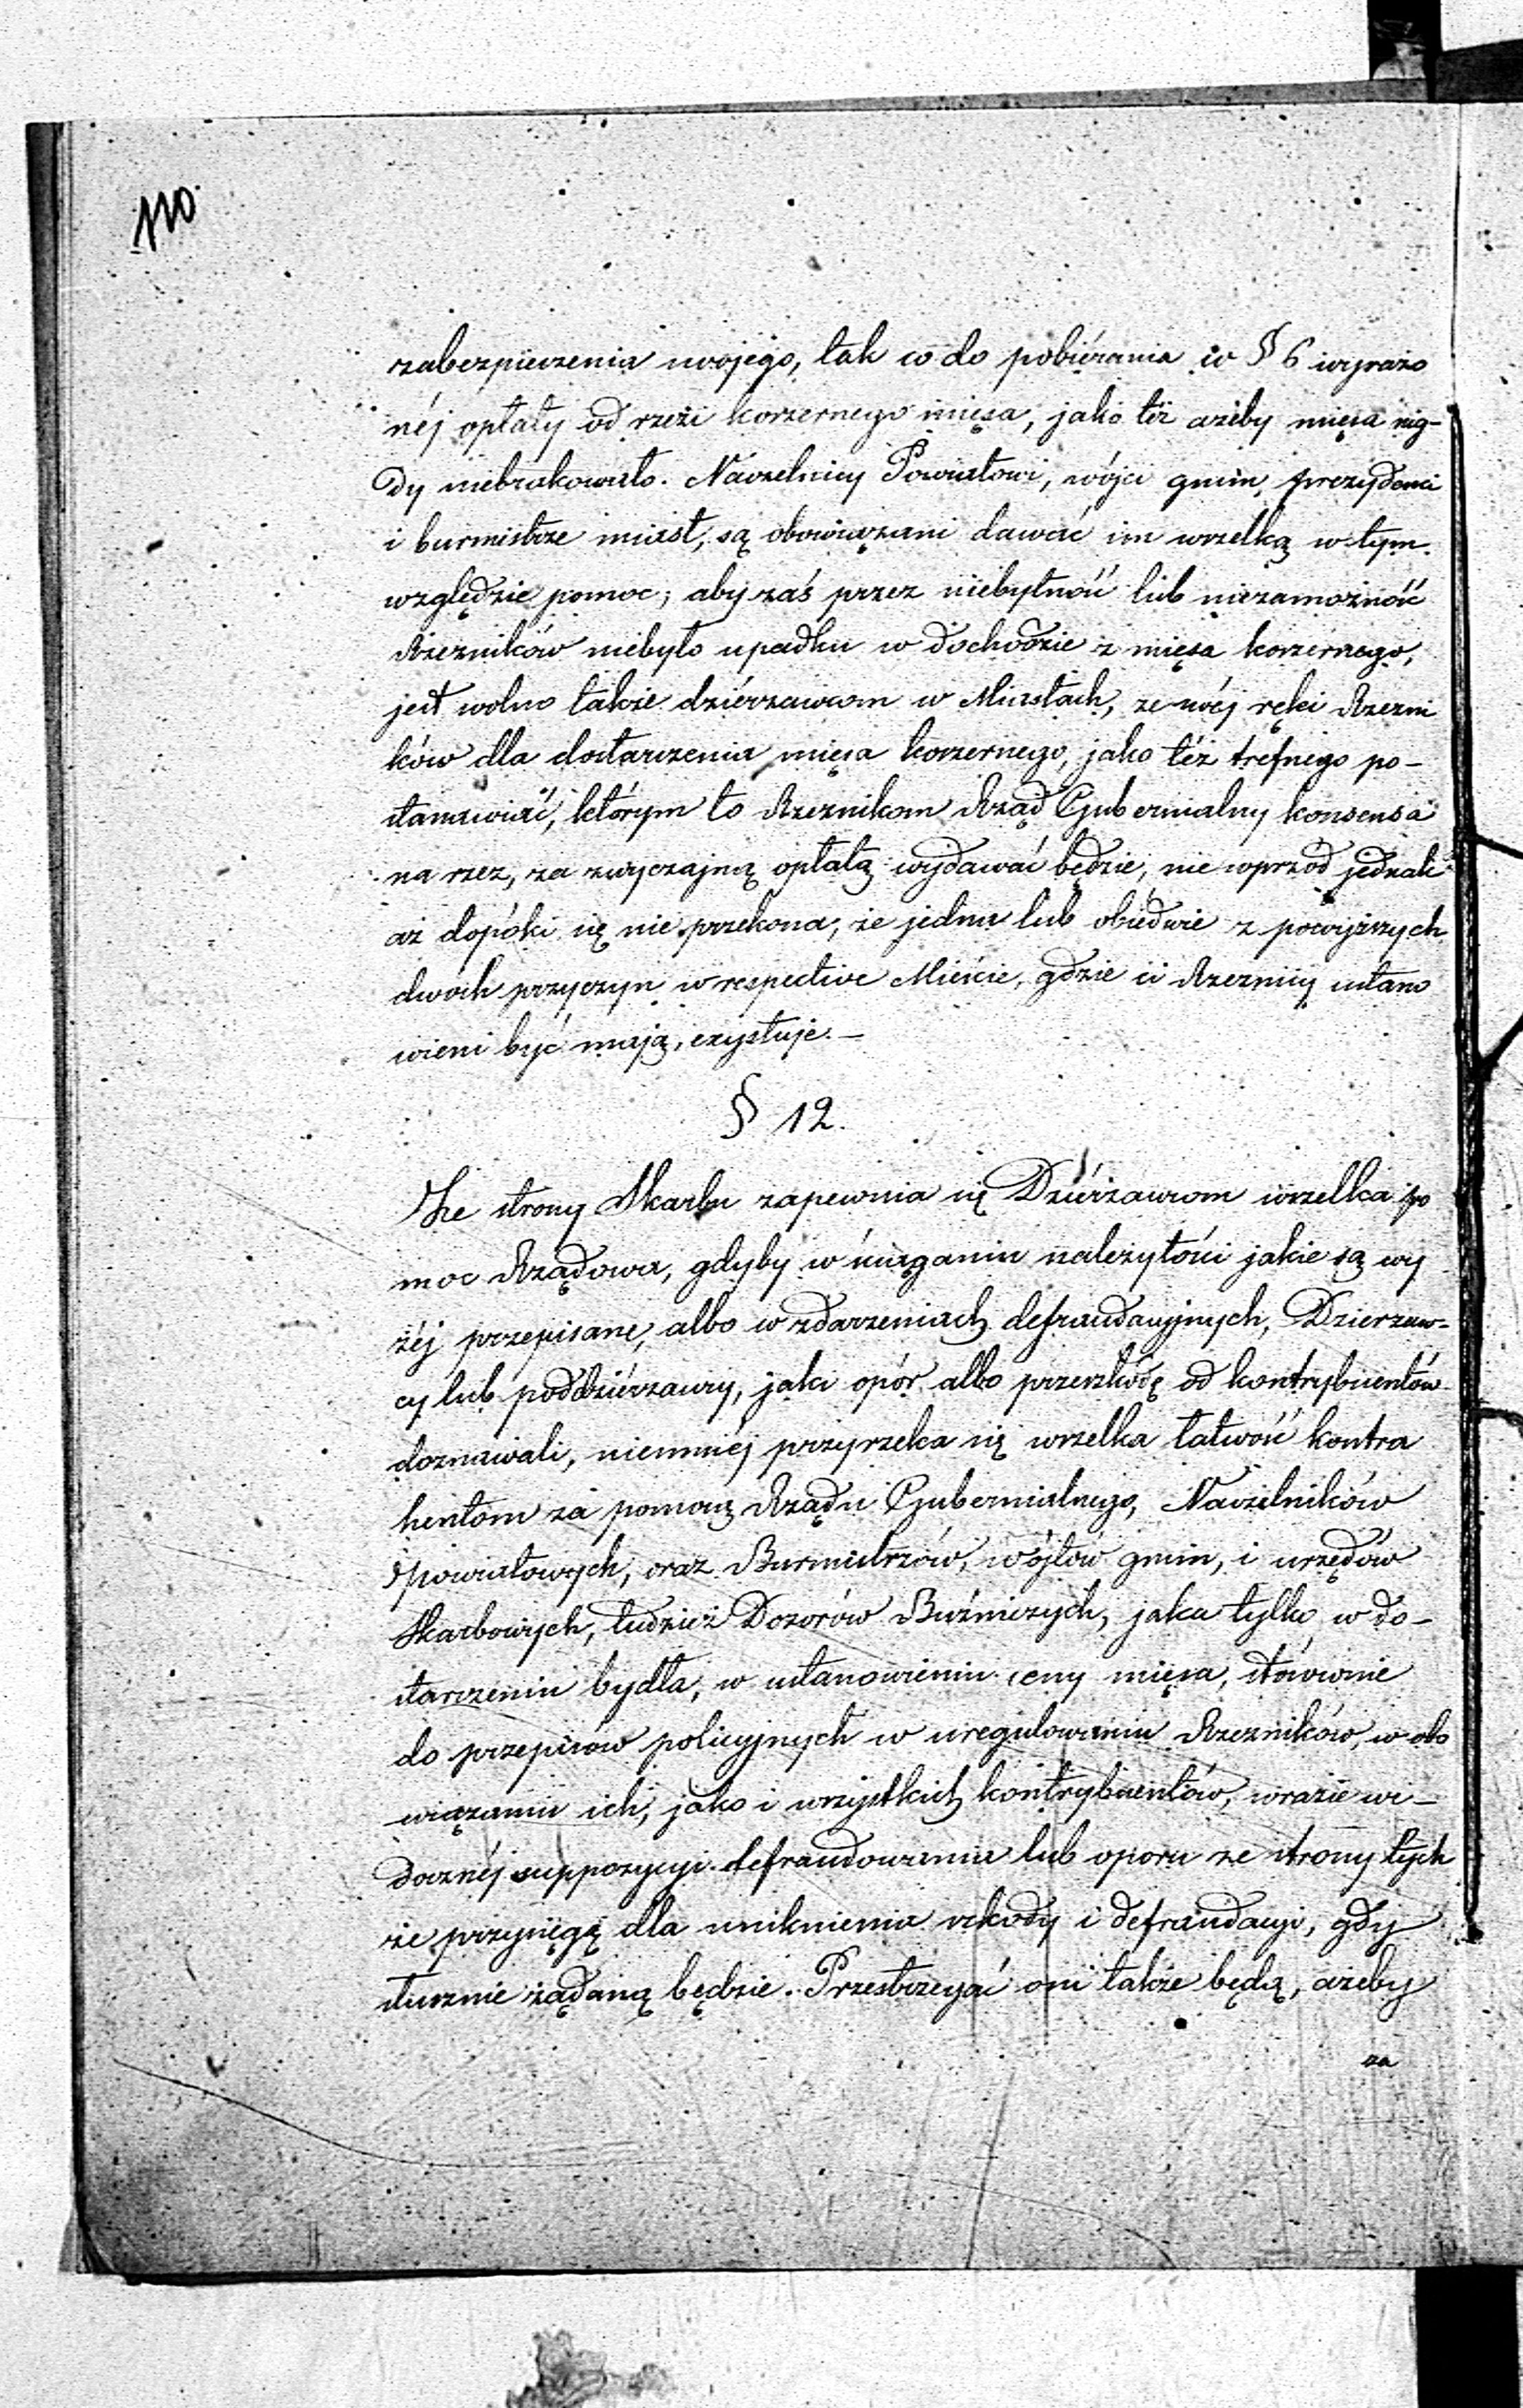 110
zabezpieczenia swojego, tak co do pobiérania w § 6 wyrażo
néj opłaty od rzezi koszernego mięsa, jako téż ażeby mięsa nig-
dy niebrakowało. Naczelnicy Powiatowi, wójci gmin, prezydenci
i burmistrze miast, są obowiązani dawać im wszelką w tym
względzie pomoc; aby zaś przez niebytność lub niezamożność
Rzezników niebyło upadku w dochodzie z mięsa koszernego,
jest wolno także dziérzawcom w Miastach, ze swéj ręki Rzezni
ków dla dostarczenia mięsa koszernego, jako téż trefnego po-
stanawiać, którym to Rzeznikom Rząd Gubernialny konsensa
na rzez, za zwyczajną opłatą wydawać będzie, nie wprzód jednak
aż dopóki się nie przekona, że jedna lub obiedwie z powyższych
dwóch przyczyn w respective Mieście, gdzie ci Rzeznicy ustano
wieni być mają, exystuje.—
§ 12.
Ze strony Skarbu zapewnia się Dziérżawcom wszelka po
moc Rządowa, gdyby w ściąganiu należytości jakie są wy
żéj przepisane, albo w zdarzeniach defraudacyjnych, Dzierzaw-
cy lub poddziérzawcy, jaki opór albo przeszkodę od kontrybuentów
doznawali, niemniéj przyrzeka się wszelka łatwość kontra
hentom za pomocą Rządu Gubernialnego, Naczelników
Powiatowych, oraz Burmistrzów, wójtów gmin, i urzędów
Skarbowych, tudzież Dozorów Bożniczych, jaka tylko w do-
starczeniu bydła, w ustanowieniu ceny mięsa, stósownie
do przepisów policyjnych w uregulowaniu Rzezników, w obo
wiązaniu ich, jako i wszystkich kontrybuentów, wrazie wi-
docznéj suppozycyi defraudowania lub oporu ze strony tych
że przysięgą dla uniknienia szkody i defraudacyi, gdy
słusznie żądaną będzie. Przestrzegać oni także będą, ażeby
za